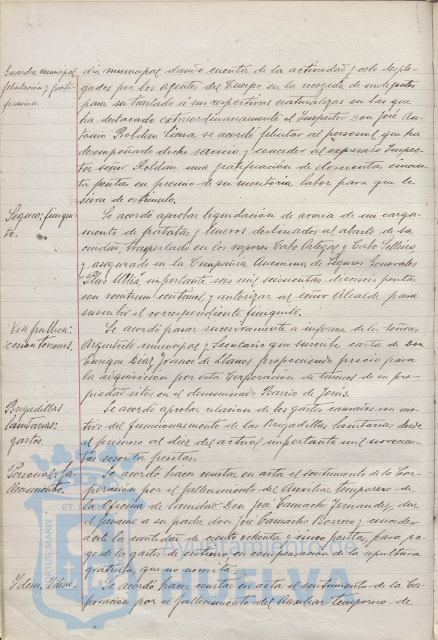 Guardia municipal
felicitación y grati-
ficación.
dia municipal dando cuenta de la actividad y celo desple-
gados por los agentes del Cuerpo en la recogida de indigentes
para su traslado a sus respectivas naturalezas en las que
ha destacado extraordinariamente el Inspector Don José An-
tonio Roldan Sierra, se acordó felicitar al personal que ha
desempeñado dicho servicio y conceder al expresado Inspec-
tor señor Roldan una gratificación de doscientas cincuen-
ta pesetas en premio de su meritoria labor para que le
sirva de estímulo.
Seguro: finiqui-
to.
Se acordó aprobar liquidación de avería de un carga-
mento de patatas y huevos destinados al abasto de la
ciudad, trasportado en los vapores Cabo Ortegal y Cabo
y asegurado en la Compañía Anónima de Seguros Generales
"Plus Ultra" importante seis mil seiscientas dieciseis pesetas
con veintiun centimos, y autorizar al señor Alcalde para
suscribir el correspondiente finiquito.
Via publica:
cesion terrenos.
Se acordó pasar sucesivamente a informe de los señores
Arquitecto municipal y Secretario que suscribe carta de Don
Enrique Diaz Franco de Llanos proponiendo precio para
la adquisición por esta Corporacion de terrenos de su pro-
piedad sitos en el denominado Barrio de Jesús.
Brigadillas
Sanitarias:
gastos.
Se acordó aprobar relacion de los gastos causados con mo-
tivo del funcionamiento de las Brigadillas Sanitarias desde
el primero al diez del actual importante mil novecien-
tas sesenta pesetas.
Personal: fa-
llecimiento.
Se acordó hacer constar en acta el sentimiento de la Cor-
poracion por el fallecimiento del Auxiliar temporero de
la Oficina de Sanidad Don José Camacho Fernandez, dar
el pésame a su padre don José Camacho Borrero y conceder
a este la cantidad de ciento ochenta y cinco pesetas, para pa-
go de los gastos de entierro en compensación de la sepultura
gratuita que no necesita.
Idem. Idem.
Se acordó hacer constar en acta el sentimiento de la Cor-
poración por el fallecimiento del Auxiliar temporero de
HUELVA